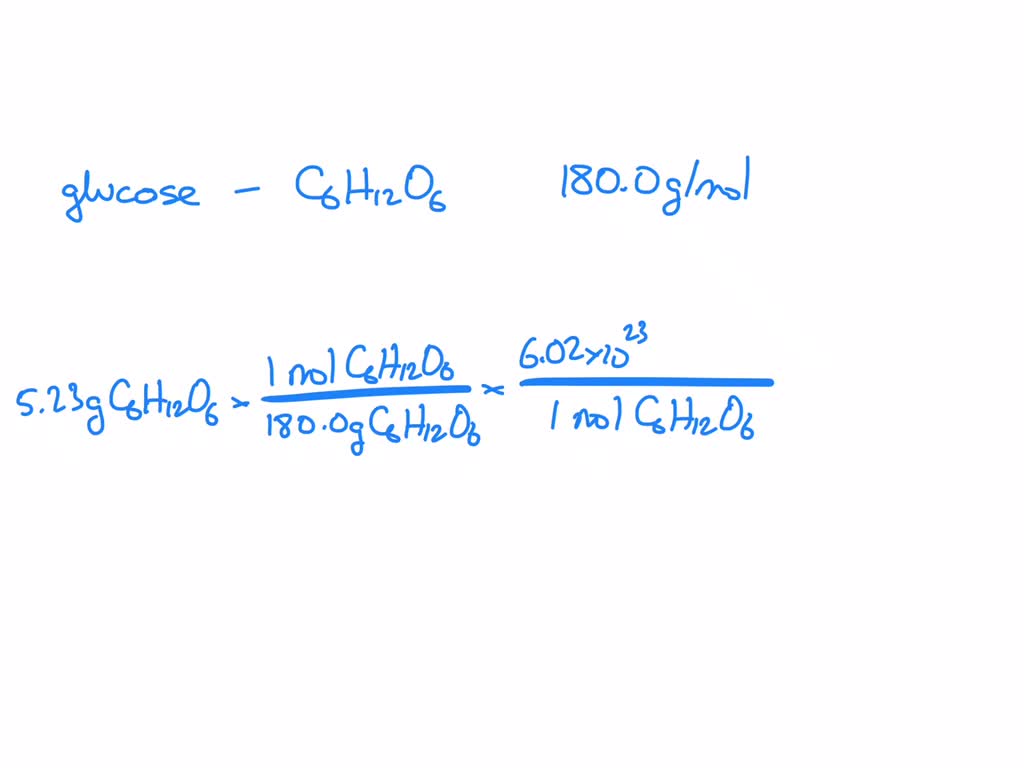 glucose - C₆H₁₂O₆ 180.0g/mol
5.23g C₆H₁₂O₆ × 1 mol C₆H₁₂O₆ / 180.0g C₆H₁₂O₆ × 6.02×10²³ / 1 mol C₆H₁₂O₆